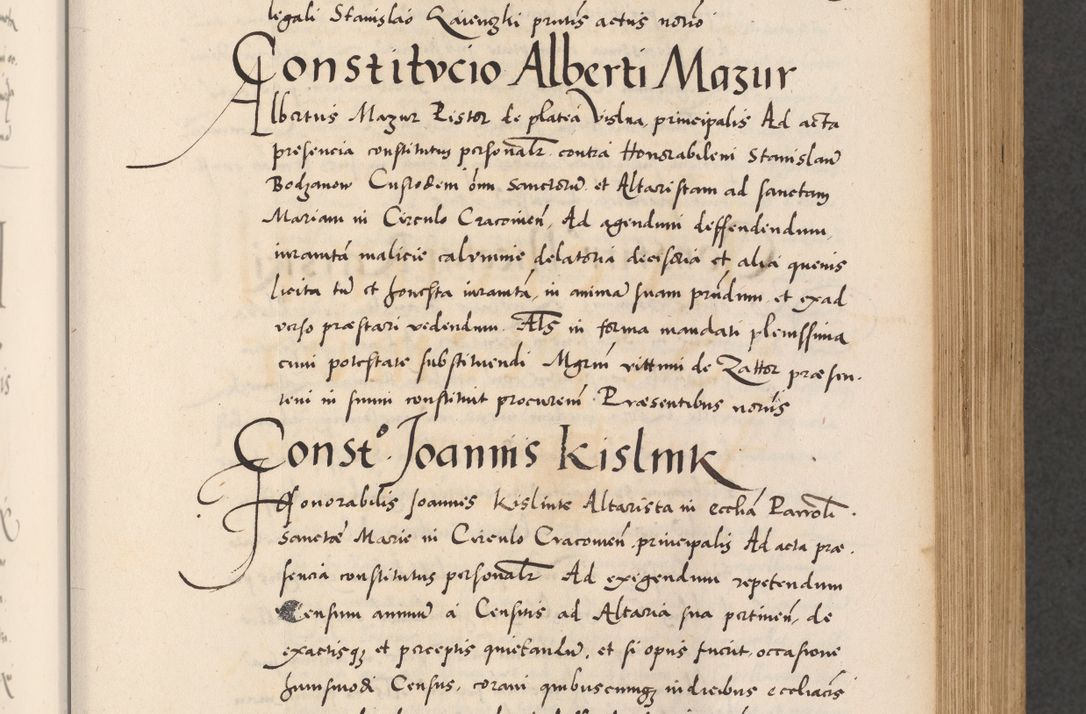 legali Stanislao Raienzki pntis actus norio
Constitvcio Alberti Mazur
Albertus Mazur Pistor de platea Vislna principalis Ad acta
presencia constitutus personalr contra Honorabilem Stanislaū
Bodzanow Custodem ōm Sanctorū et Altaristam ad sanctam
Mariam in Circulo Cracovien̄ Ad agendum deffendendum
iuramtā malicie calvmnie delatoria decisoria et alia quevis
licita tn̄ et honesta iuramtā in animā suam prn̄dum et exad
verso præstari vedendum Als in forma mandati plenissima
cum potestate substituendi Mgrm̄ vittum de Zattor præsen
tem in suum constituit procurem̄ Præsentibus noriis
Constᵒ Joannis Kislink
Honorabilis Joannes Kislink Altarista in ecclīa Parrolī
Sanctæ Marie in Circulo Cracovien̄ principalis Ad acta præ
sencia constitutus personalr Ad exigendum repetendum
Censum annuū a Censitis ad Altaria sua pertinen̄ de
exactisqȝ et perceptis quietandū et si opus fuerit occasione
huiusmodi Census coram quibuscunqȝ iudicibus eccliacis